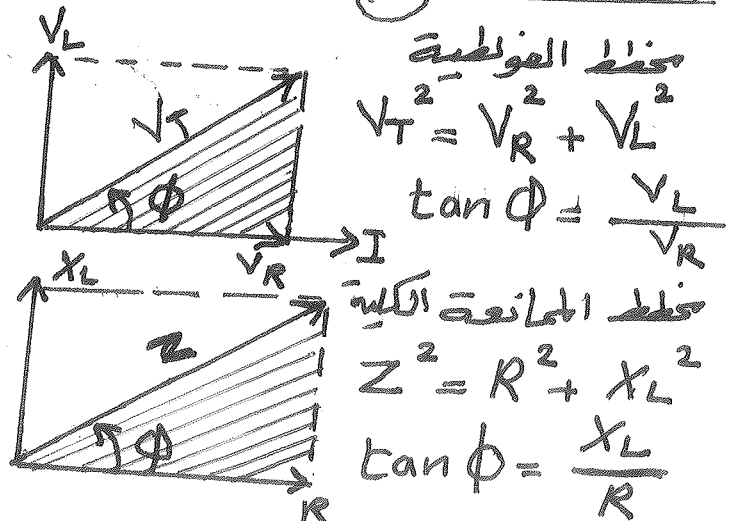 V_L
V_T
Φ
V_R
I
مخطط الفولطية
V_T² = V_R² + V_L²
tan Φ = V_L / V_R
X_L
Z
Φ
R
مخطط الممانعة الكلية
Z² = R² + X_L²
tan Φ = X_L / R